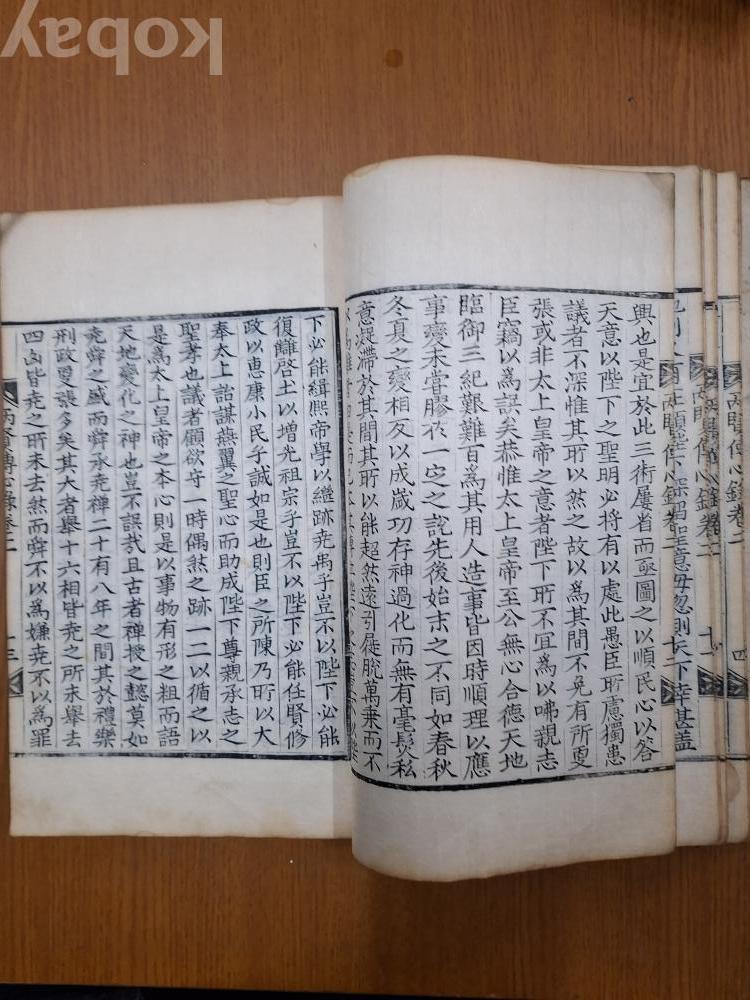 kobay
興也是宜於此三術屢省而亟圖之以順民心以答
天意以陛下之聖明必將有以處此愚臣所慮獨患
議者不深惟其所以然之故以爲其間不免有所更
張或非太上皇帝之意者陛下所不宜爲以咈親志
臣竊以爲誤矣恭惟太上皇帝至公無心合德天地
臨御三紀艱難百爲其用人造事皆因時順理以應
事變未嘗膠於一定之說先後始末之不同如春秋
冬夏之變相反以成歲功存神過化而無有毫髮私
意凝滯於其間其所以能超然遠引屣脫萬乘而不
下必能緝熙帝學以繼跡堯禹乎豈不以陛下必能
復讎啓土以增光祖宗乎豈不以陛下必能任賢修
政以惠康小民乎誠如是也則臣之所陳乃所以大
奉太上詒謀燕翼之聖心而助成陛下尊親承志之
聖孝也議者顧欲守一時偶然之跡一二以循之以
是爲太上皇帝之本心則是以事物有形之粗而語
天地變化之神也豈不誤哉且古者禪授之懿莫如
堯舜之盛而舜承堯禪二十有八年之間其於禮樂
刑政更張多矣其大者舉十六相皆堯之所未舉去
四凶皆堯之所未去然而舜不以爲嫌堯不以爲罪
兩賢傳心錄卷二
十三